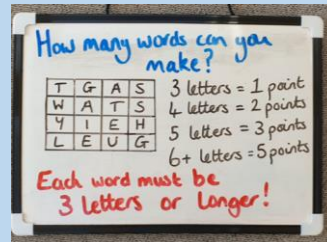 How many words can you
make?
T G A S
W A T S
Y I E H
L E U G
3 letters = 1 point
4 letters = 2 points
5 letters = 3 points
6+ letters = 5 points
Each word must be
3 letters or longer!